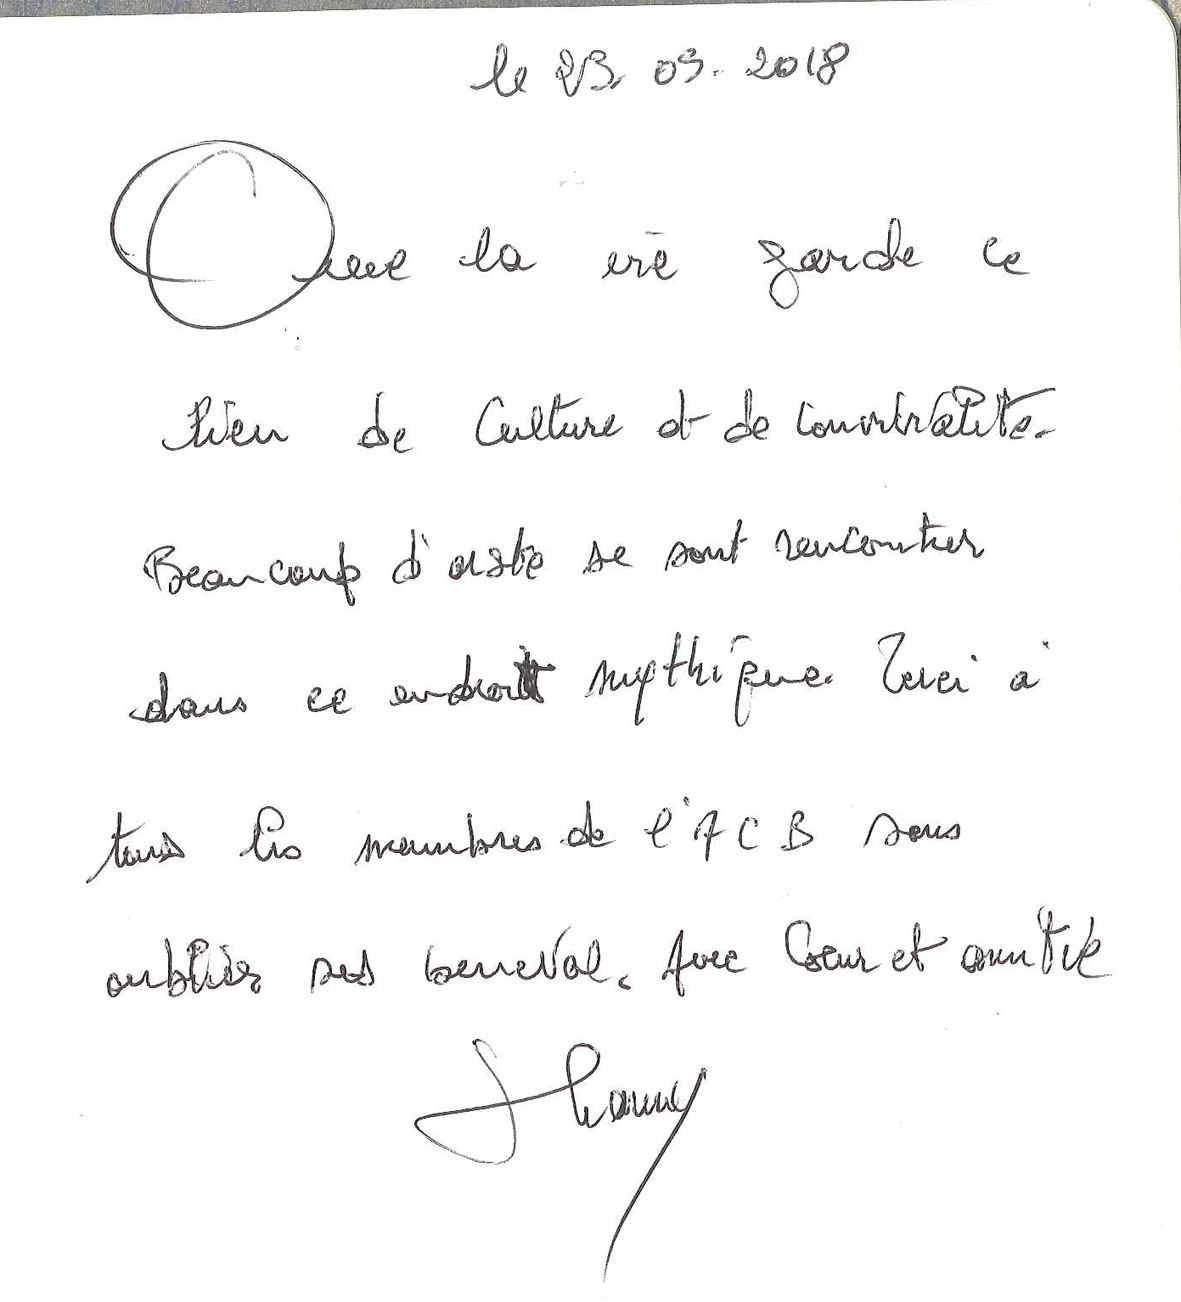 le 23. 09. 2018
Que la vie garde ce
lieu de Culture et de convivialité.
Beaucoup d'artiste se sont rencontrer
dans ce endroit mythique. Merci à
tous les membres de l'ACB sans
oublier ses benevol. Avec Cœur et amitié